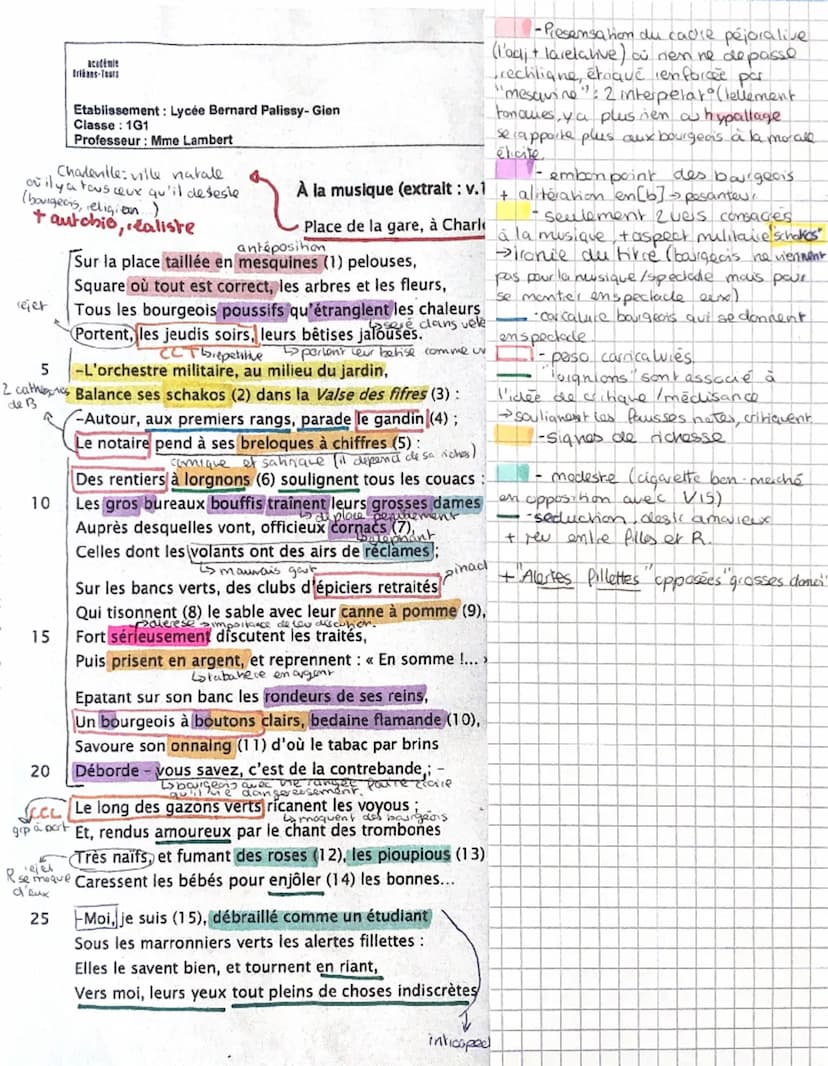 académie
Orléans-Tours
Etablissement : Lycée Bernard Palissy- Gien
Classe : 1G1
Professeur : Mme Lambert
Charleville: ville natale
où il y a tous ceux qu'il deteste
(bourgeois, religion...)
+ autobio, réaliste
À la musique (extrait : v.1
Place de la gare, à Charl
antéposition
Sur la place taillée en mesquines (1) pelouses,
Square où tout est correct, les arbres et les fleurs,
rejet
Tous les bourgeois poussifs qu'étranglent les chaleurs
↳ serré dans vête
Portent, les jeudis soirs, leurs bêtises jalouses.
CCT ↳ répétitive ↳ portent leur betise comme un
5 –L'orchestre militaire, au milieu du jardin,
2 catégories
de B
Balance ses schakos (2) dans la Valse des fifres (3) :
–Autour, aux premiers rangs, parade le gandin (4) ;
Le notaire pend à ses breloques à chiffres (5) :
comique et satirique (il dépend de sa riches)
Des rentiers à lorgnons (6) soulignent tous les couacs :
10 Les gros bureaux bouffis traînent leurs grosses dames
↳ déplace péniblement
Auprès desquelles vont, officieux cornacs (7),
↳ éléphant
Celles dont les volants ont des airs de réclames ;
↳ mauvais gout
Sur les bancs verts, des clubs d'épiciers retraités
Qui tisonnent (8) le sable avec leur canne à pomme (9),
diérèse → importance de leur discution.
15 Fort sérieusement discutent les traités,
Puis prisent en argent, et reprennent : « En somme !...
↳ tabatière en argent
Epatant sur son banc les rondeurs de ses reins,
Un bourgeois à boutons clairs, bedaine flamande (10),
Savoure son onnaing (11) d'où le tabac par brins
20 Déborde – vous savez, c'est de la contrebande ; –
↳ bourgeois avec vie rangée
qu'il vie dangereusement.
CCL
grp à part
Le long des gazons verts ricanent les voyous ;
↳ moquent des bourgeois
Et, rendus amoureux par le chant des trombones
rejet
R se moque
d'eux
Très naïfs, et fumant des roses (12), les pioupious (13)
Caressent les bébés pour enjôler (14) les bonnes...
25 –Moi, je suis (15), débraillé comme un étudiant
Sous les marronniers verts les alertes fillettes :
Elles le savent bien, et tournent en riant,
Vers moi, leurs yeux tout pleins de choses indiscrètes
introspect
- Présensation du cadre péjorative
(l'adj + la relative) où rien ne depasse
rectiligne, étroqué renforcée par
"mesquine": 2 interpétat° (tellement
, y a plus rien ou hypallage
se rapporte plus aux bourgeois à la morale
éticite.
- embonpoint des bourgeois
+ alitération en [b] → pesanteur
- seulement 2 vers consacés
à la musique, + aspect militaire "schakos"
→ ironie du titre (bourgeois ne viennent
pas pour la musique/spectacle mais pour
se montrer en spectacle eux)
- caricature bourgeois qui se donnent
en spectacle
- perso carricaturés
- "lorgnions" sont associé à
l'idée de critique / médisance
→ soulignent les fausses notes, critiquent
- signes de richesse
- modeste (cigarette bon-marché
en opposition avec V15)
- séduction, désir amoureux
+ jeu entre filles et R.
+ "Alertes fillettes" opposées "grosses dames"